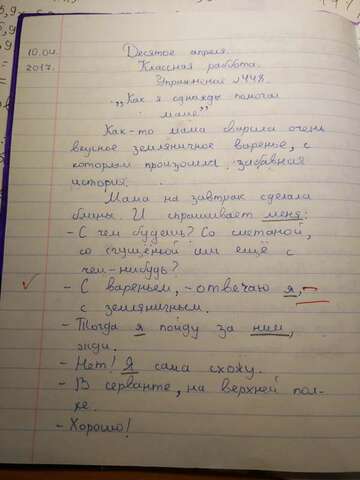 10.04.
2017г.
Десятое апреля.
Классная работа.
Упражнение №448.
„Как я однажды помогал
маме"
Как-то мама сварила очень
вкусное земляничное варенье, с
которым произошла забавная
история.
Мама на завтрак сделала
блины. И спрашивает меня:
- С чем будешь? Со сметаной,
со сгущёнкой или ещё с
чем-нибудь?
- С вареньем, - отвечаю я,
с земляничным.
- Тогда я пойду за ним,
жди.
- Нет! Я сама схожу.
- В серванте, на верхней пол-
ке.
- Хорошо!